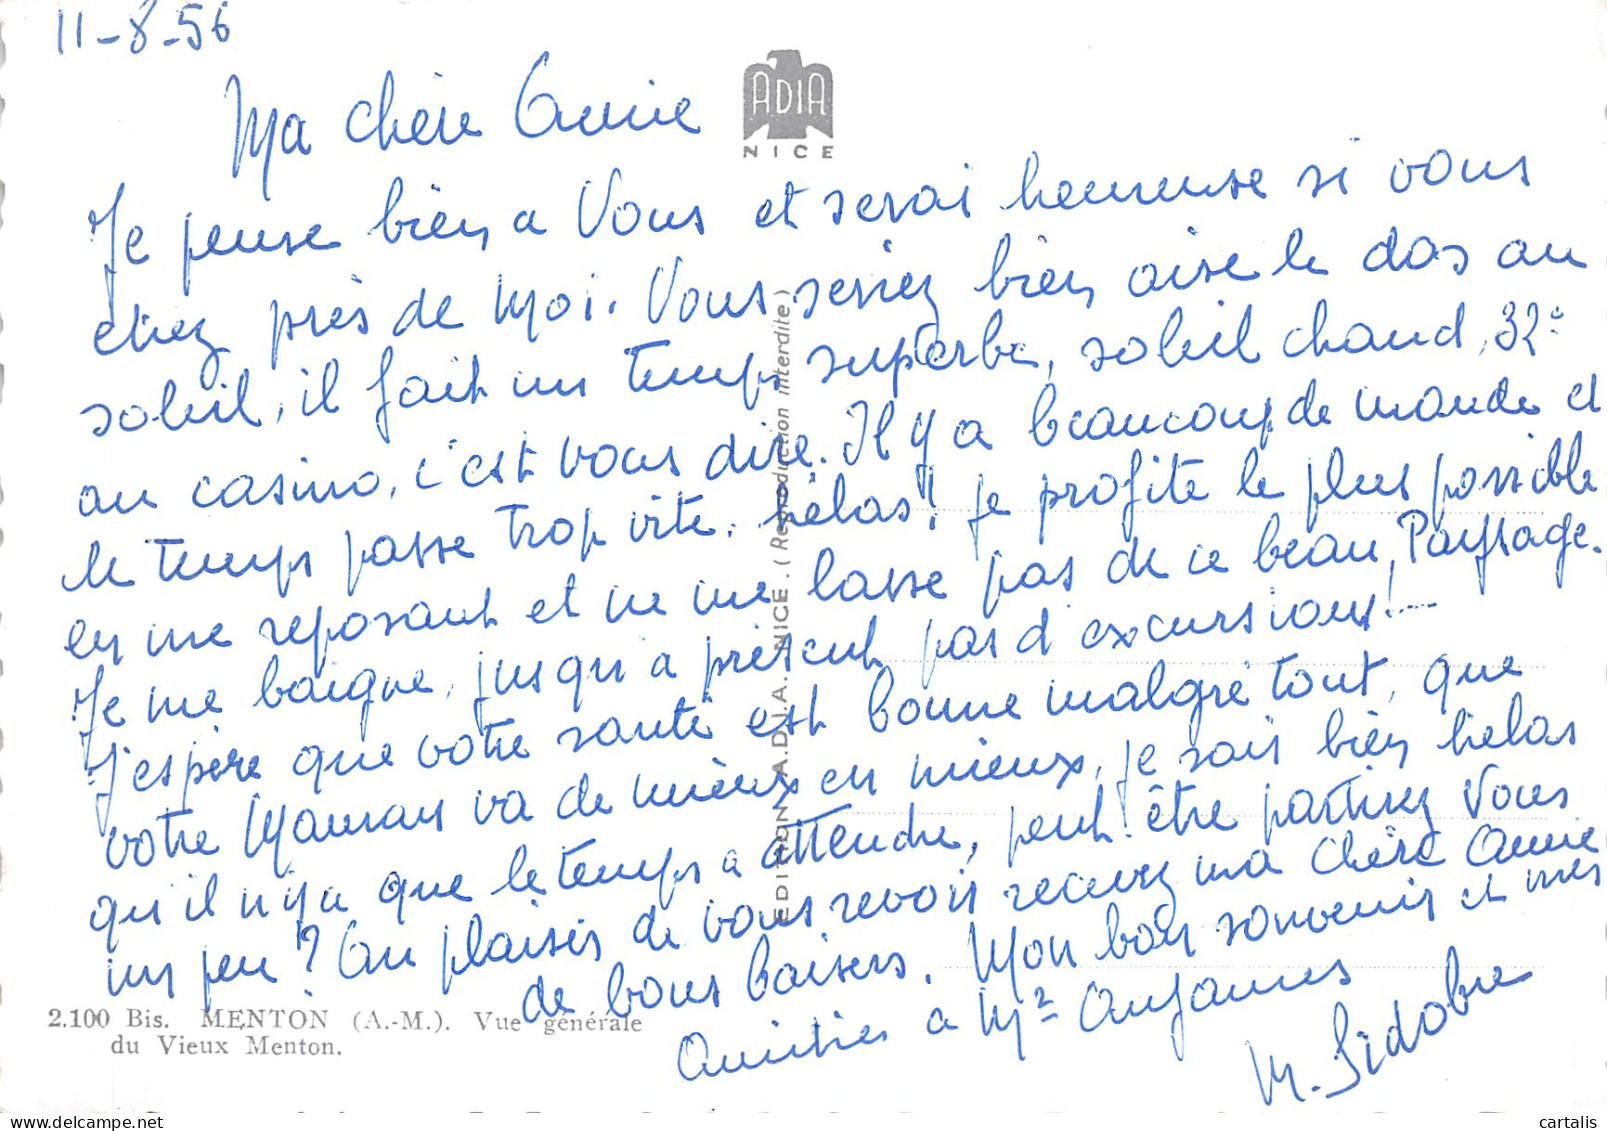 11-8-56
Ma chère Annie
ADIA
NICE
Je pense bien a Vous et serai heureuse si vous
etiez près de Moi. Vous seriez bien aise le dos au
soleil, il fait un temps superbe, soleil chaud, 32°
au casino, c'est vous dire. Il y a beaucoup de monde et
le temps passe trop vite. hélas! je profite le plus possible
en me reposant et ne me lasse pas de ce beau Paysage.
Je me baigne, jusqu'a présent pas d'excursions!...
J'espère que votre santé est bonne malgré tout, que
votre Maman va de mieux en mieux, je sais bien hélas
qu'il n'y a que le temps a attendre, peut être partirez Vous
un peu? Au plaisir de vous revoir recevez ma Chère Annie
de bons baisers. Mon bon souvenir et mes
Amitiés a Mr
M. Sidobre
EDITION A.D.I.A. NICE. (Reproduction interdite)
2.100 Bis. MENTON (A.-M.). Vue générale
du Vieux Menton.
cartalis